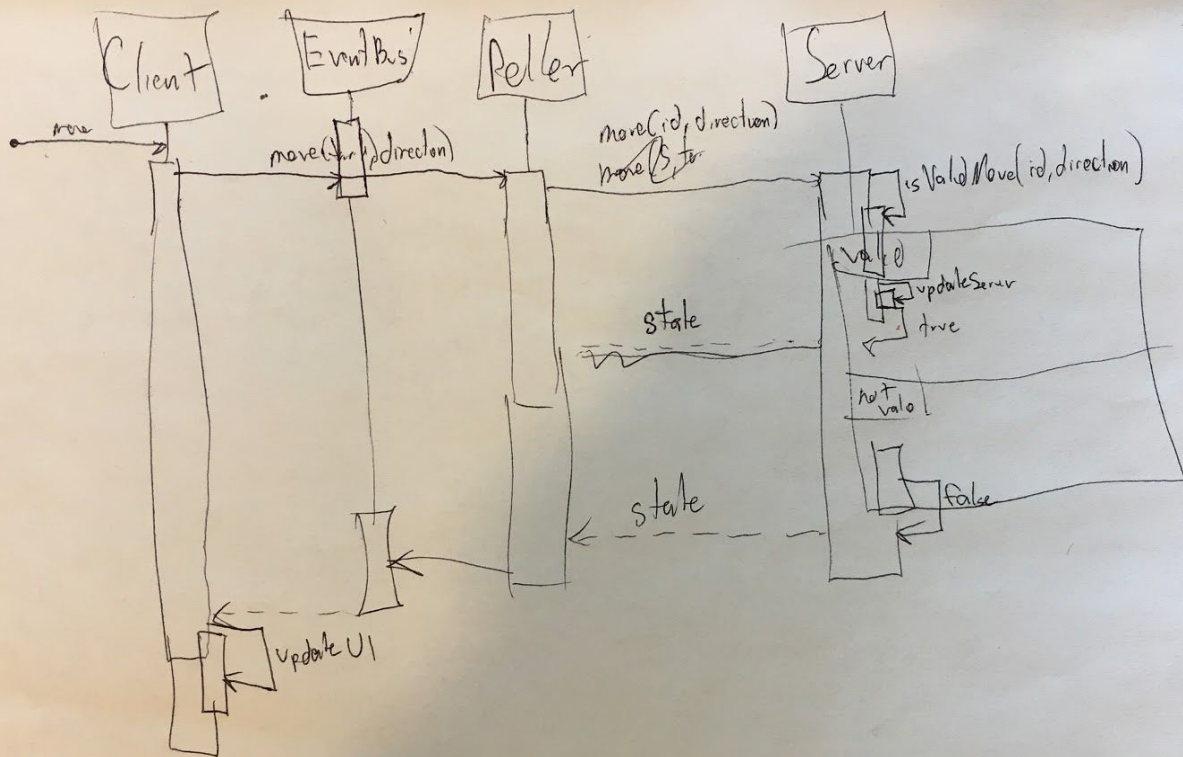 Client
EventBus
Peller
Server
move
move( , direction)
move(id, direction)
move(
isValidMove(id, direction)
valid
updateServer
true
state
not
valid
state
false
updateUI